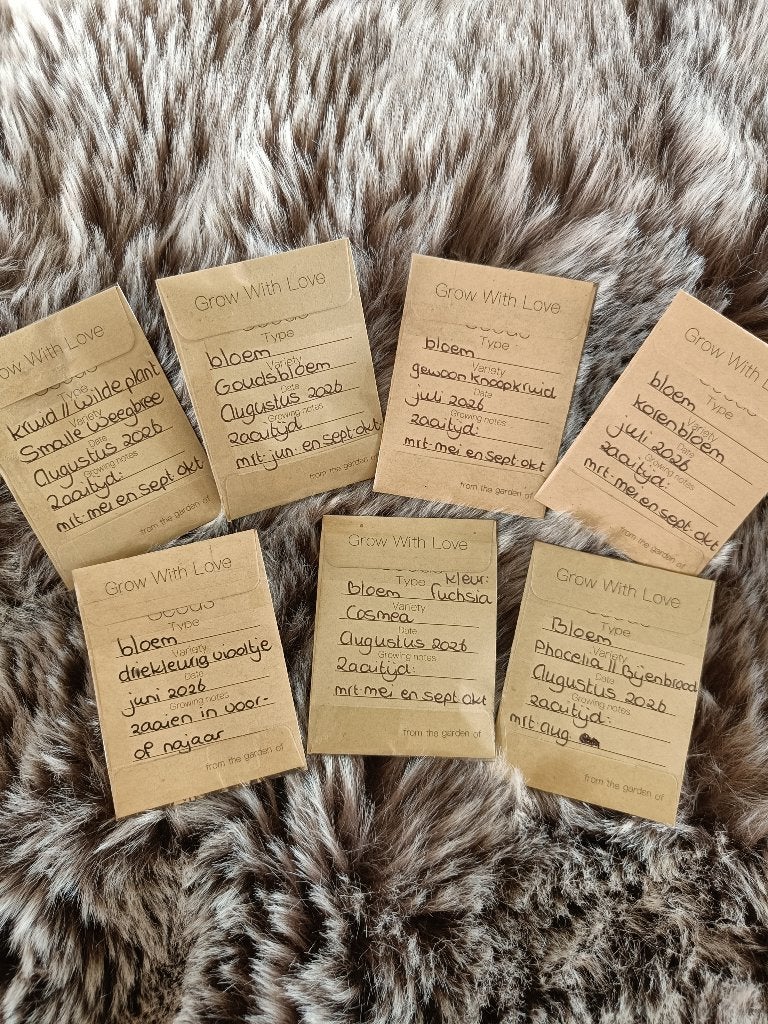 ow With Love
Type
kruid // wilde plant
Variety
Smalle weegbree
Date
Augustus 2026
Growing notes
zaaitijd:
mrt-mei en sept okt
from the garden of
Grow With Love
Seeds
Type
bloem
Variety
Goudsbloem
Date
Augustus 2026
Growing notes
zaaitijd
mrt-jun en sept okt
from the garden of
Grow With Love
Type
bloem
Variety
gewoon knoopkruid
Date
juli 2026
Growing notes
zaaitijd:
mrt-mei en sept okt
from the garden of
Grow With Love
Type
bloem
Variety
Korenbloem
Date
juli 2026
Growing notes
zaaitijd:
mrt-mei en sept. okt
from the garden of
Grow With Love
Seeds
Type
bloem
Variety
driekleurig viooltje
Date
juni 2026
Growing notes
zaaien in voor-
of najaar
from the garden of
Grow With Love
Type kleur:
Bloem fuchsia
Variety
Cosmea
Date
Augustus 2026
Growing notes
zaaitijd:
mrt-mei en sept okt
from the garden of
Grow With Love
Type
Bloem
Variety
Phacelia // Bijenbrood
Date
Augustus 2026
Growing notes
zaaitijd:
mrt-aug
from the garden of